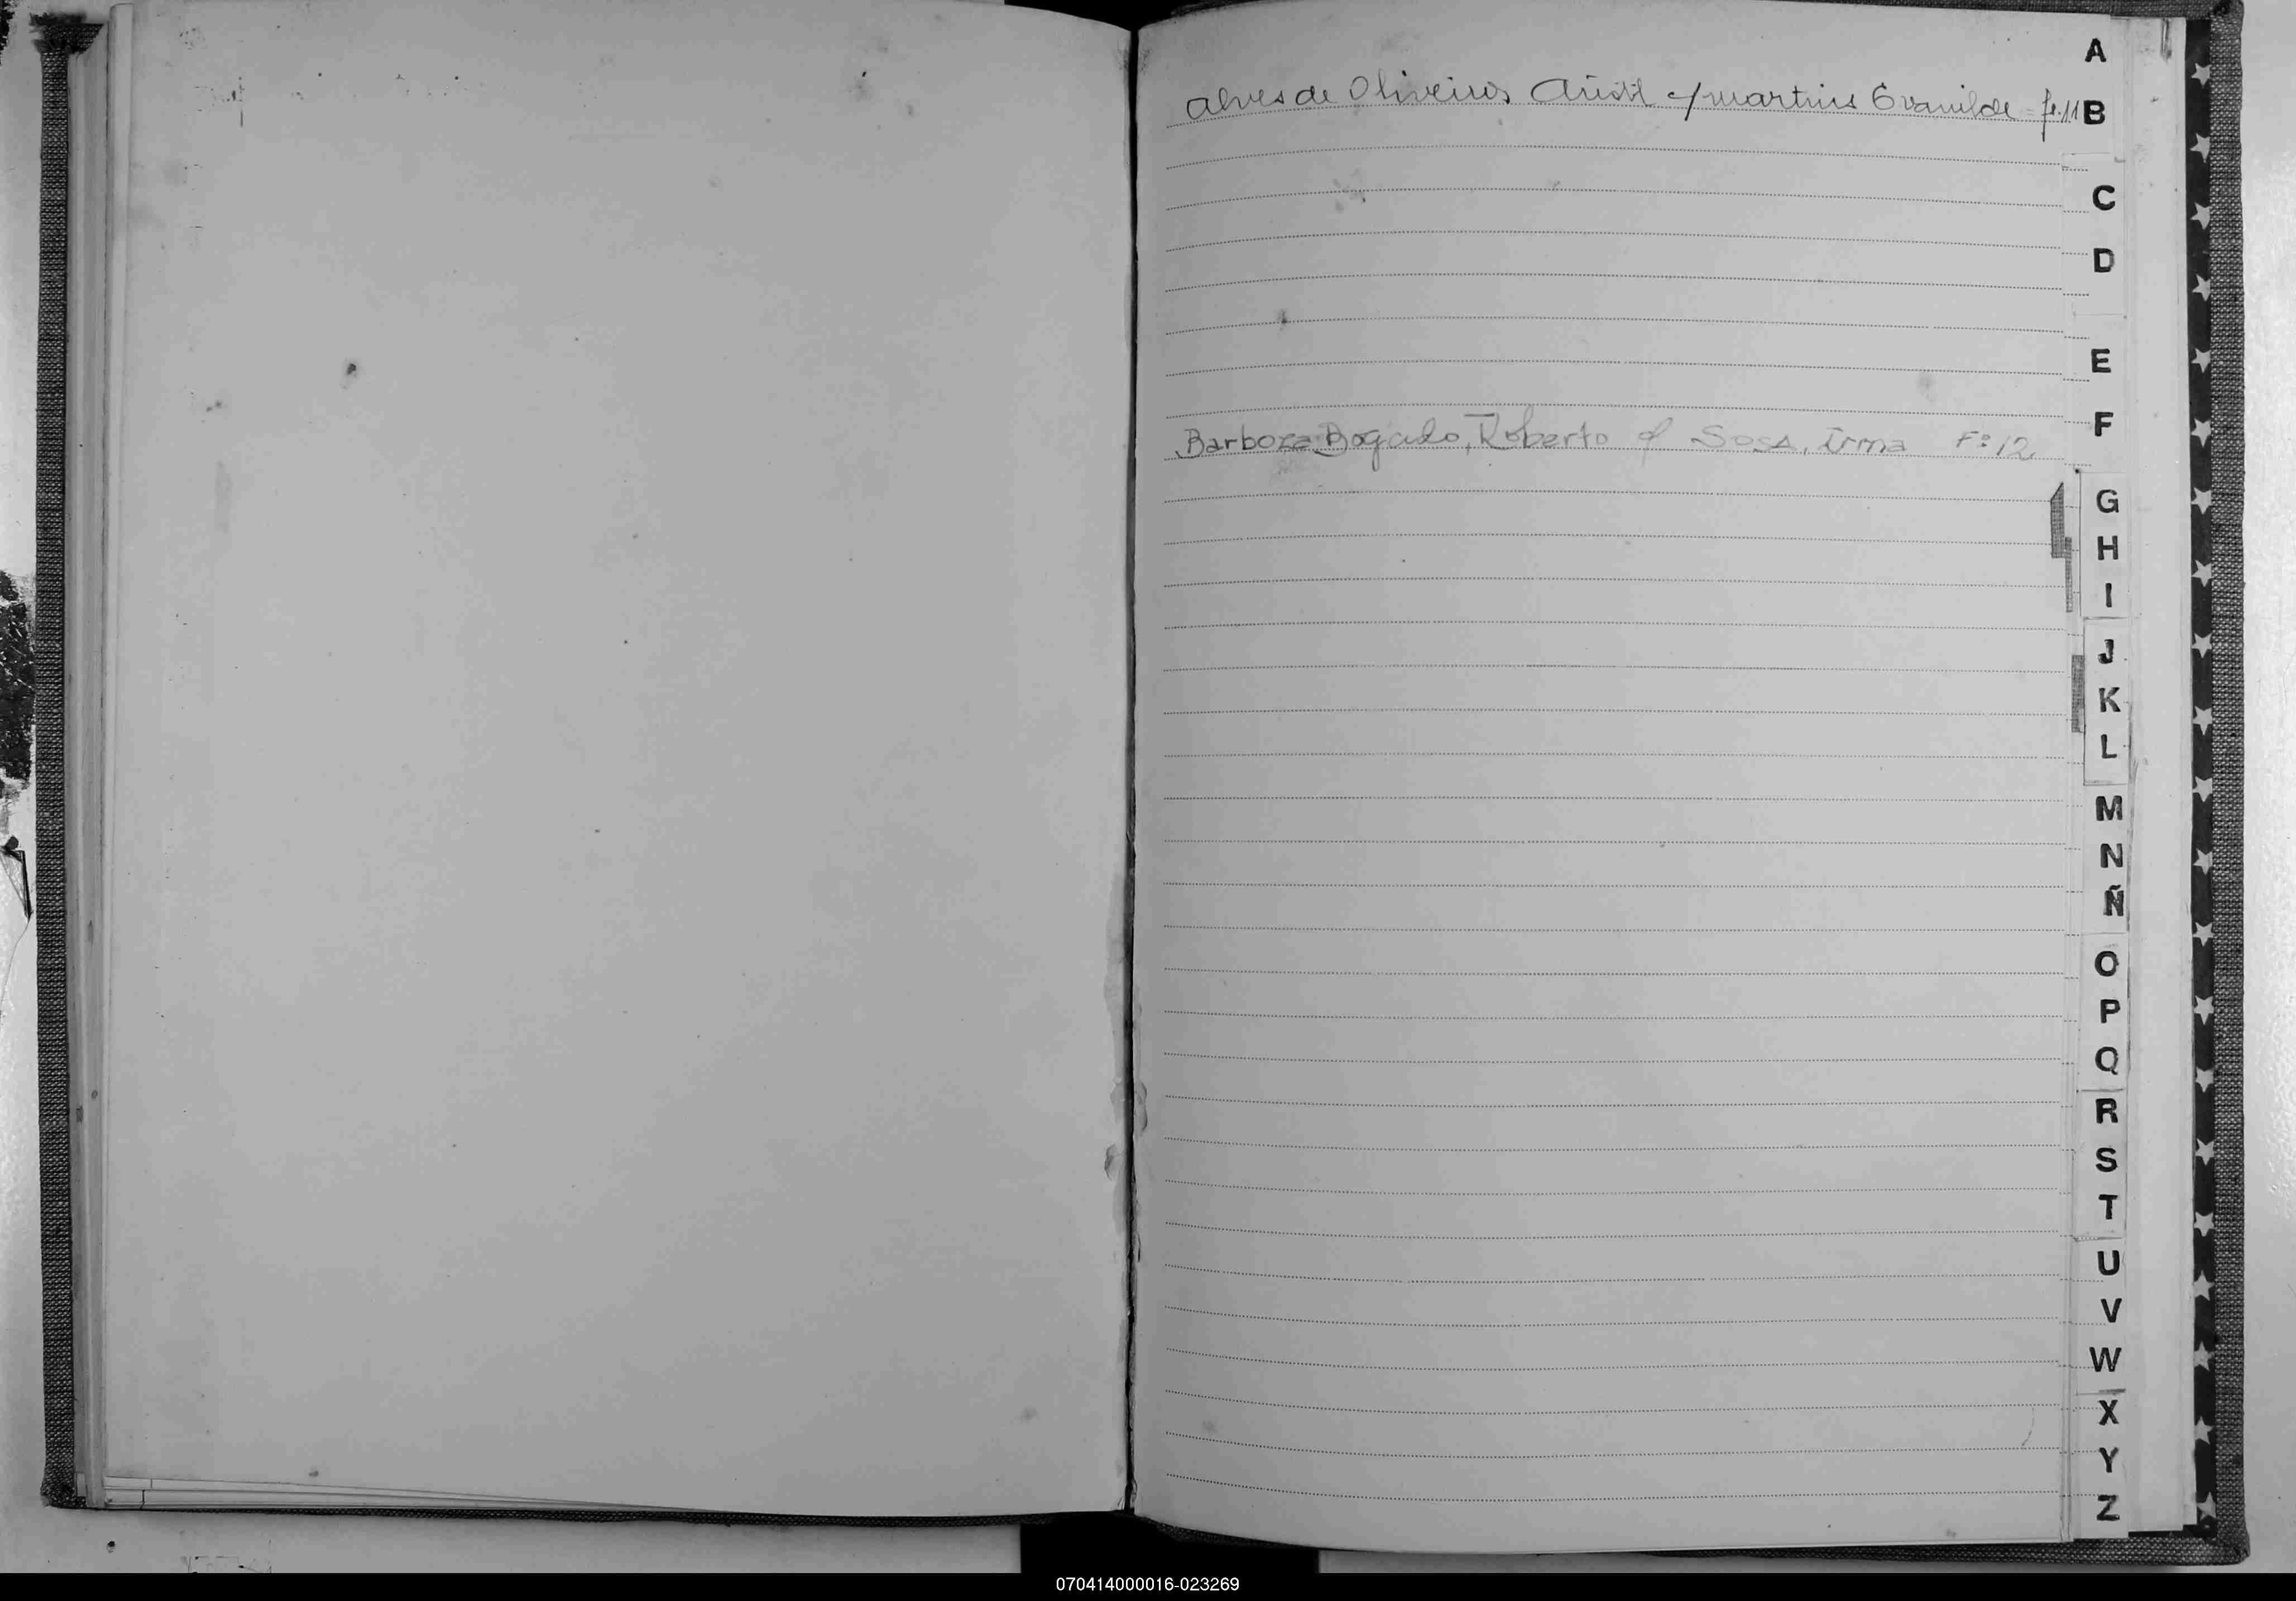 A
Alves de Oliveira c/ Martins Evanilde = fs. 11
B
C
D
E
F
Barboza Bogado, Roberto c/ Sosa, Irma F: 12
G
H
I
J
K
L
M
N
Ñ
O
P
Q
R
S
T
U
V
W
X
Y
Z
070414000016-023269